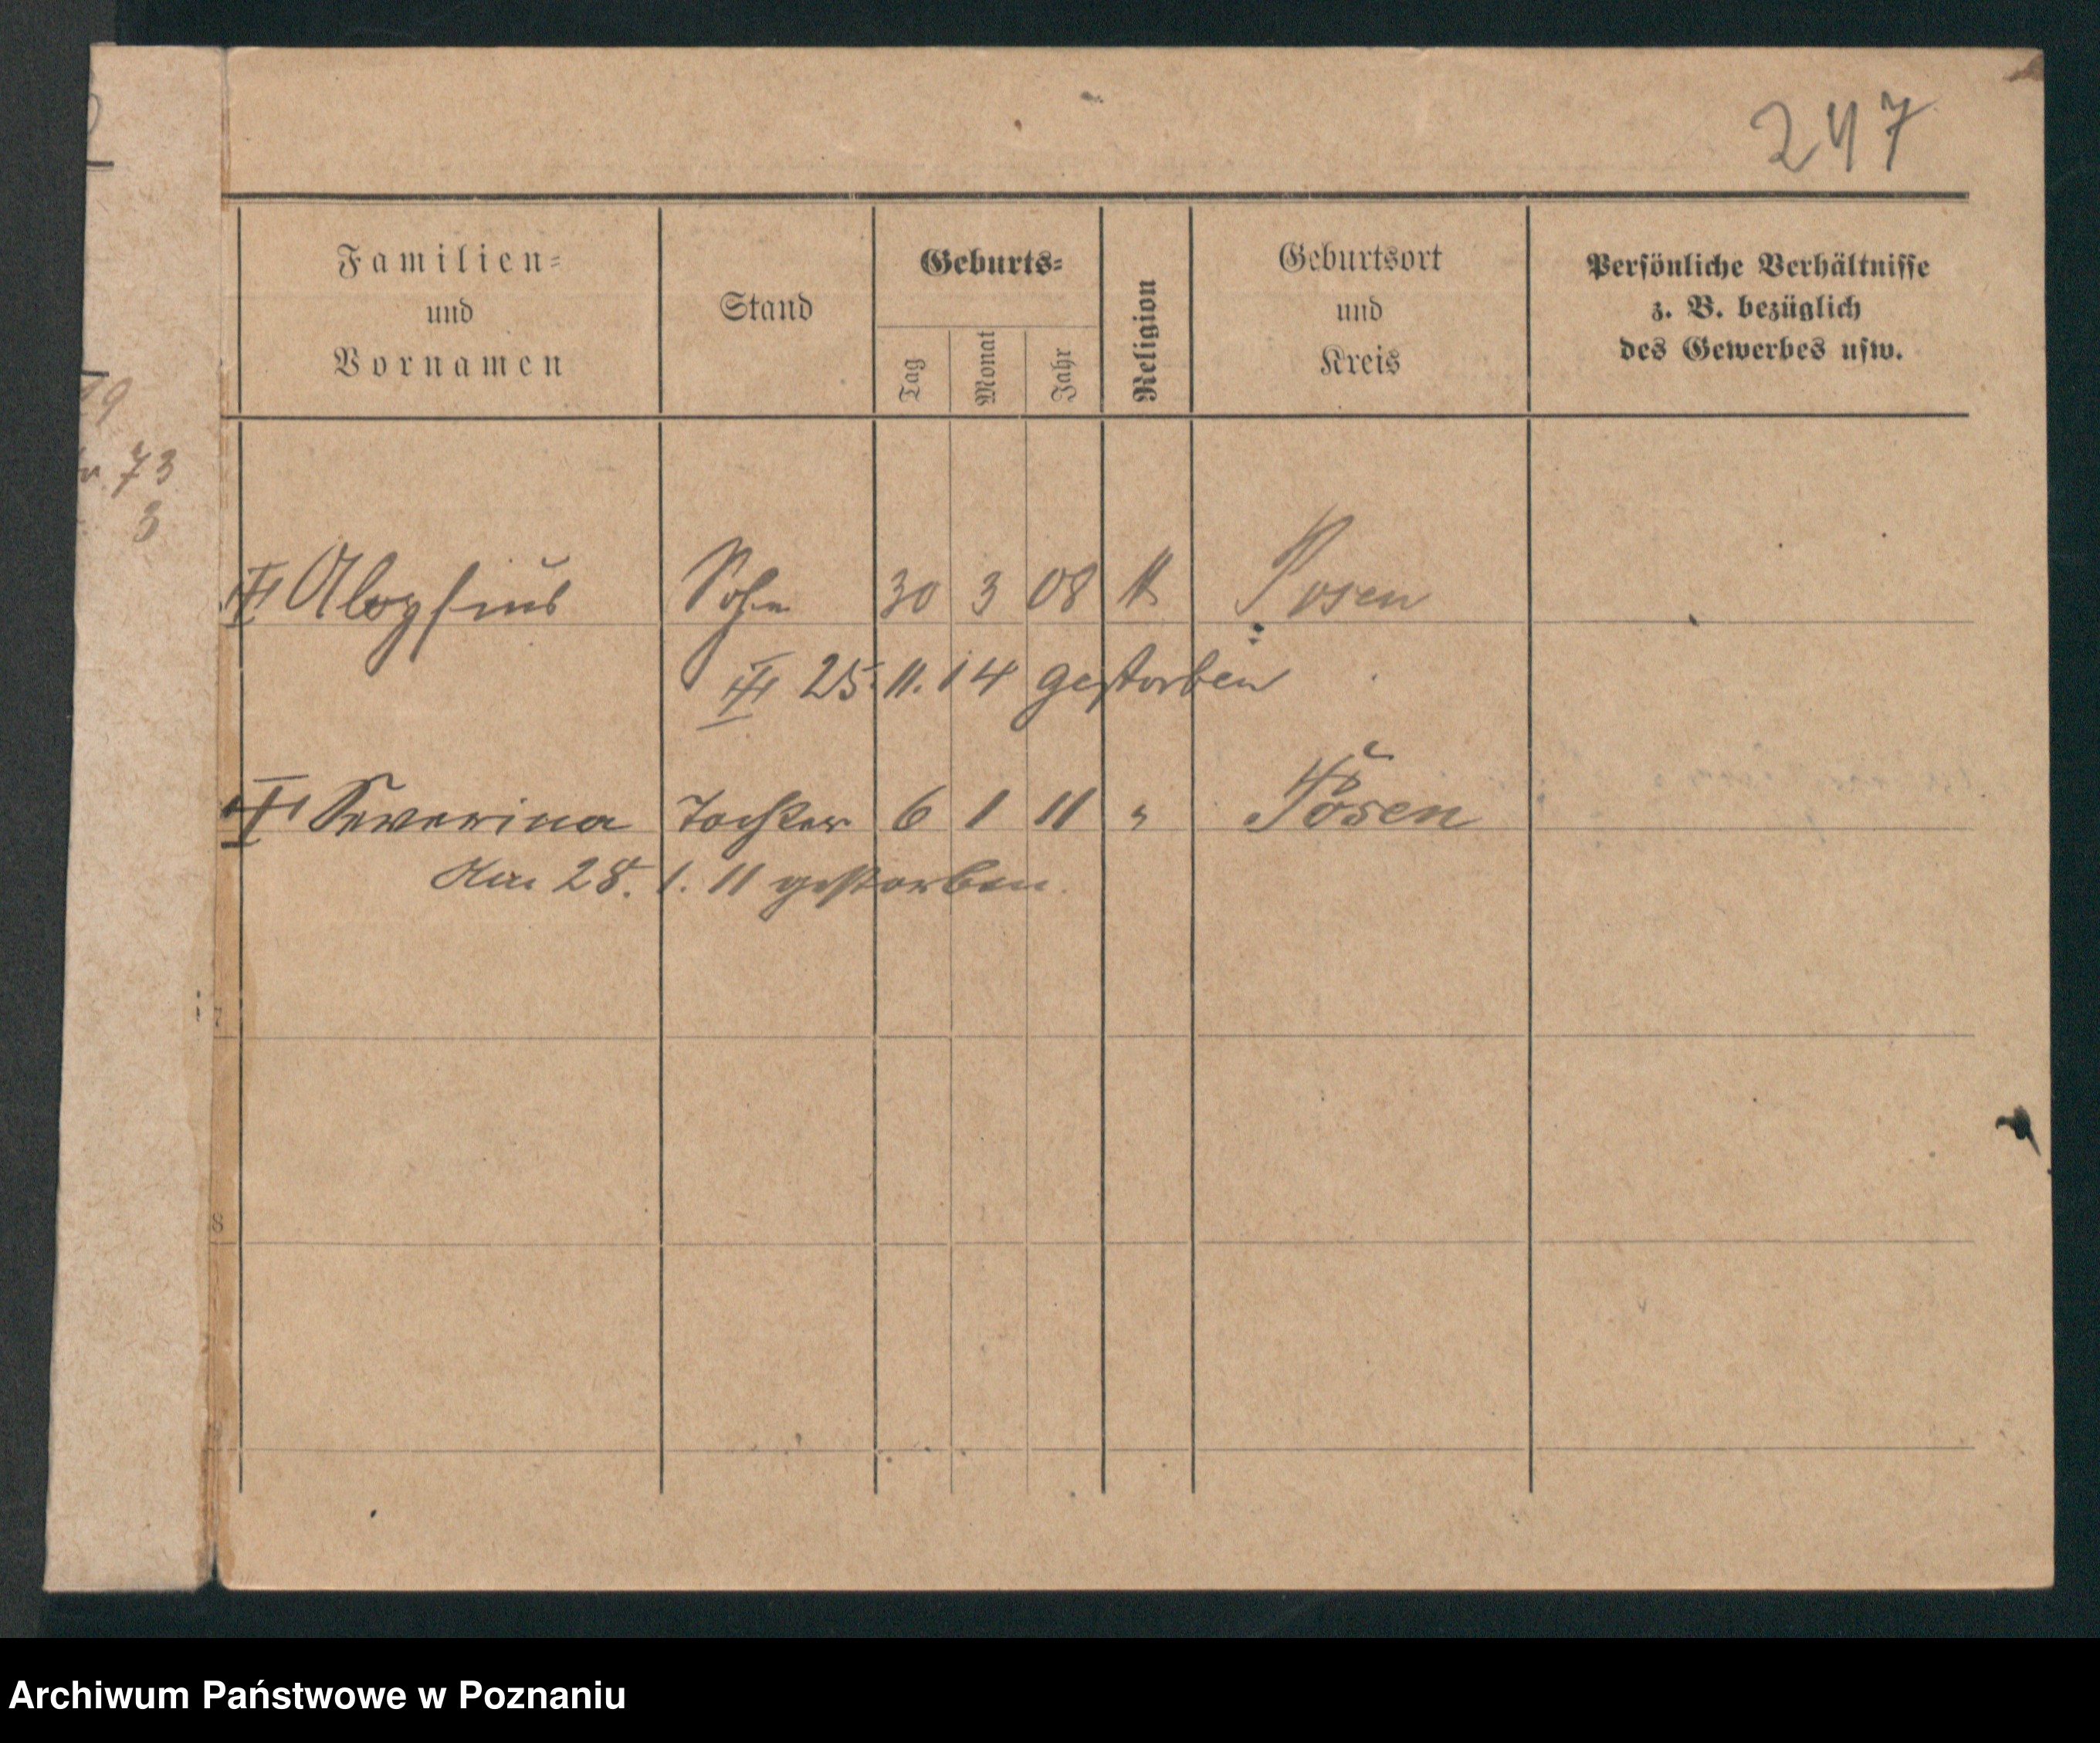 247
Familien=
und
Vornamen
Stand
Geburts=
Tag
Monat
Jahr
Religion
Geburtsort
und
Kreis
Persönliche Verhältnisse
z. B. bezüglich
des Gewerbes usw.
19
73
3
Aloysius Sohn 30 3 08 K Posen
25. 11. 14 gestorben
Severina Tochter 6 1 11 " Posen
Am 28. 1. 11 gestorben.
7
8
Archiwum Państwowe w Poznaniu